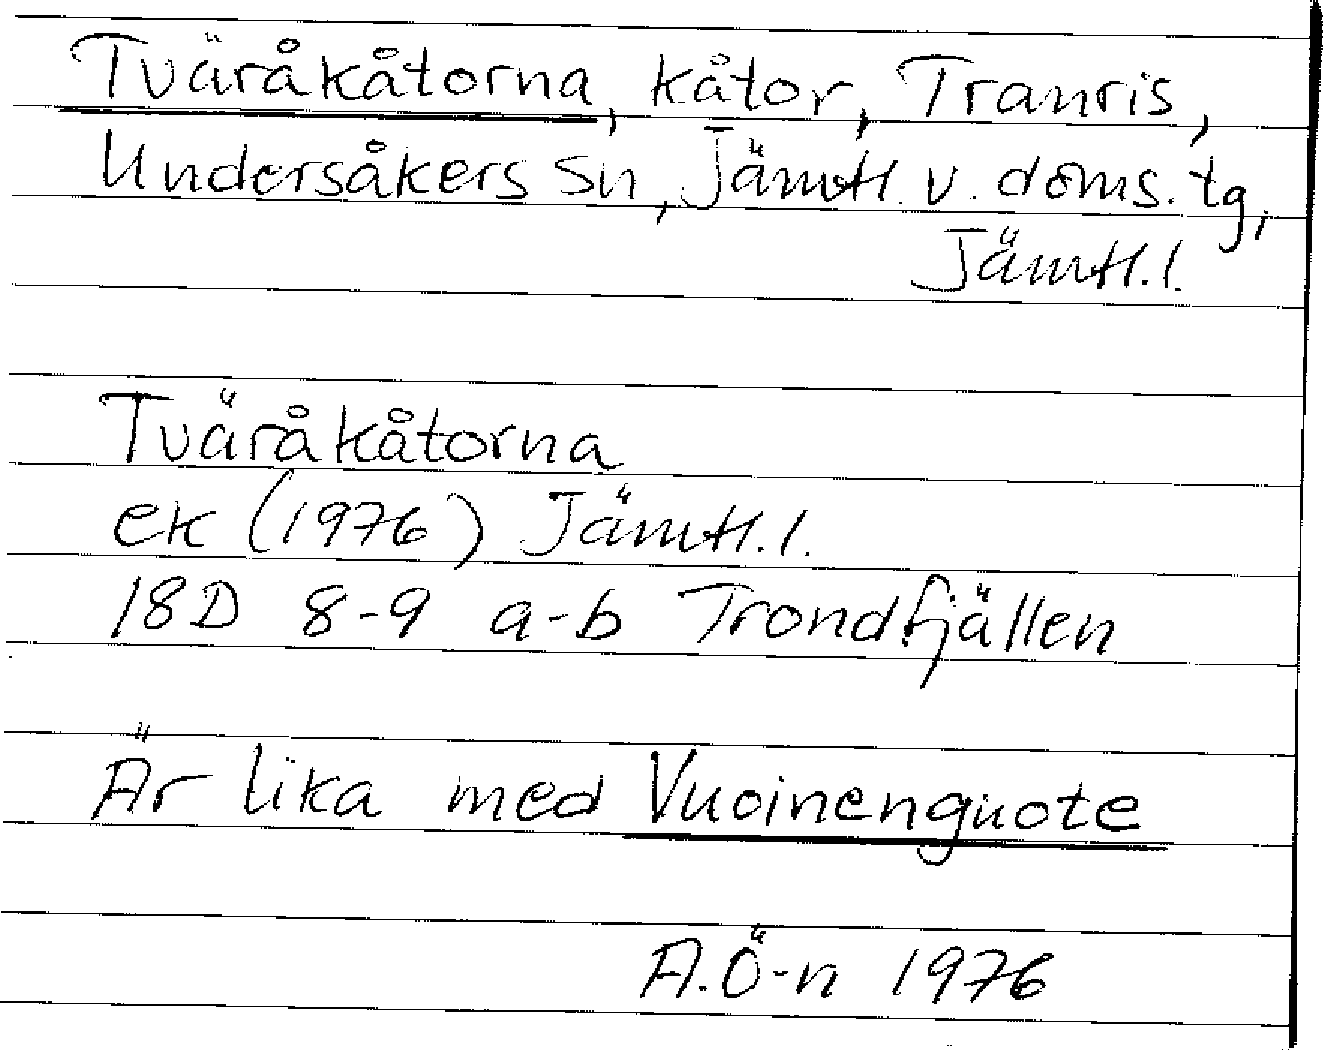 Tväråkåtorna, kåtor, Tranris,
Undersåkers sn, Jämtl. v. doms. tg,
Jämtl. l.
Tväråkåtorna
ek (1976) Jämtl. l.
18D 8-9 a-b Trondfjällen
Är lika med Vuoinenguote
A.Ö-n 1976